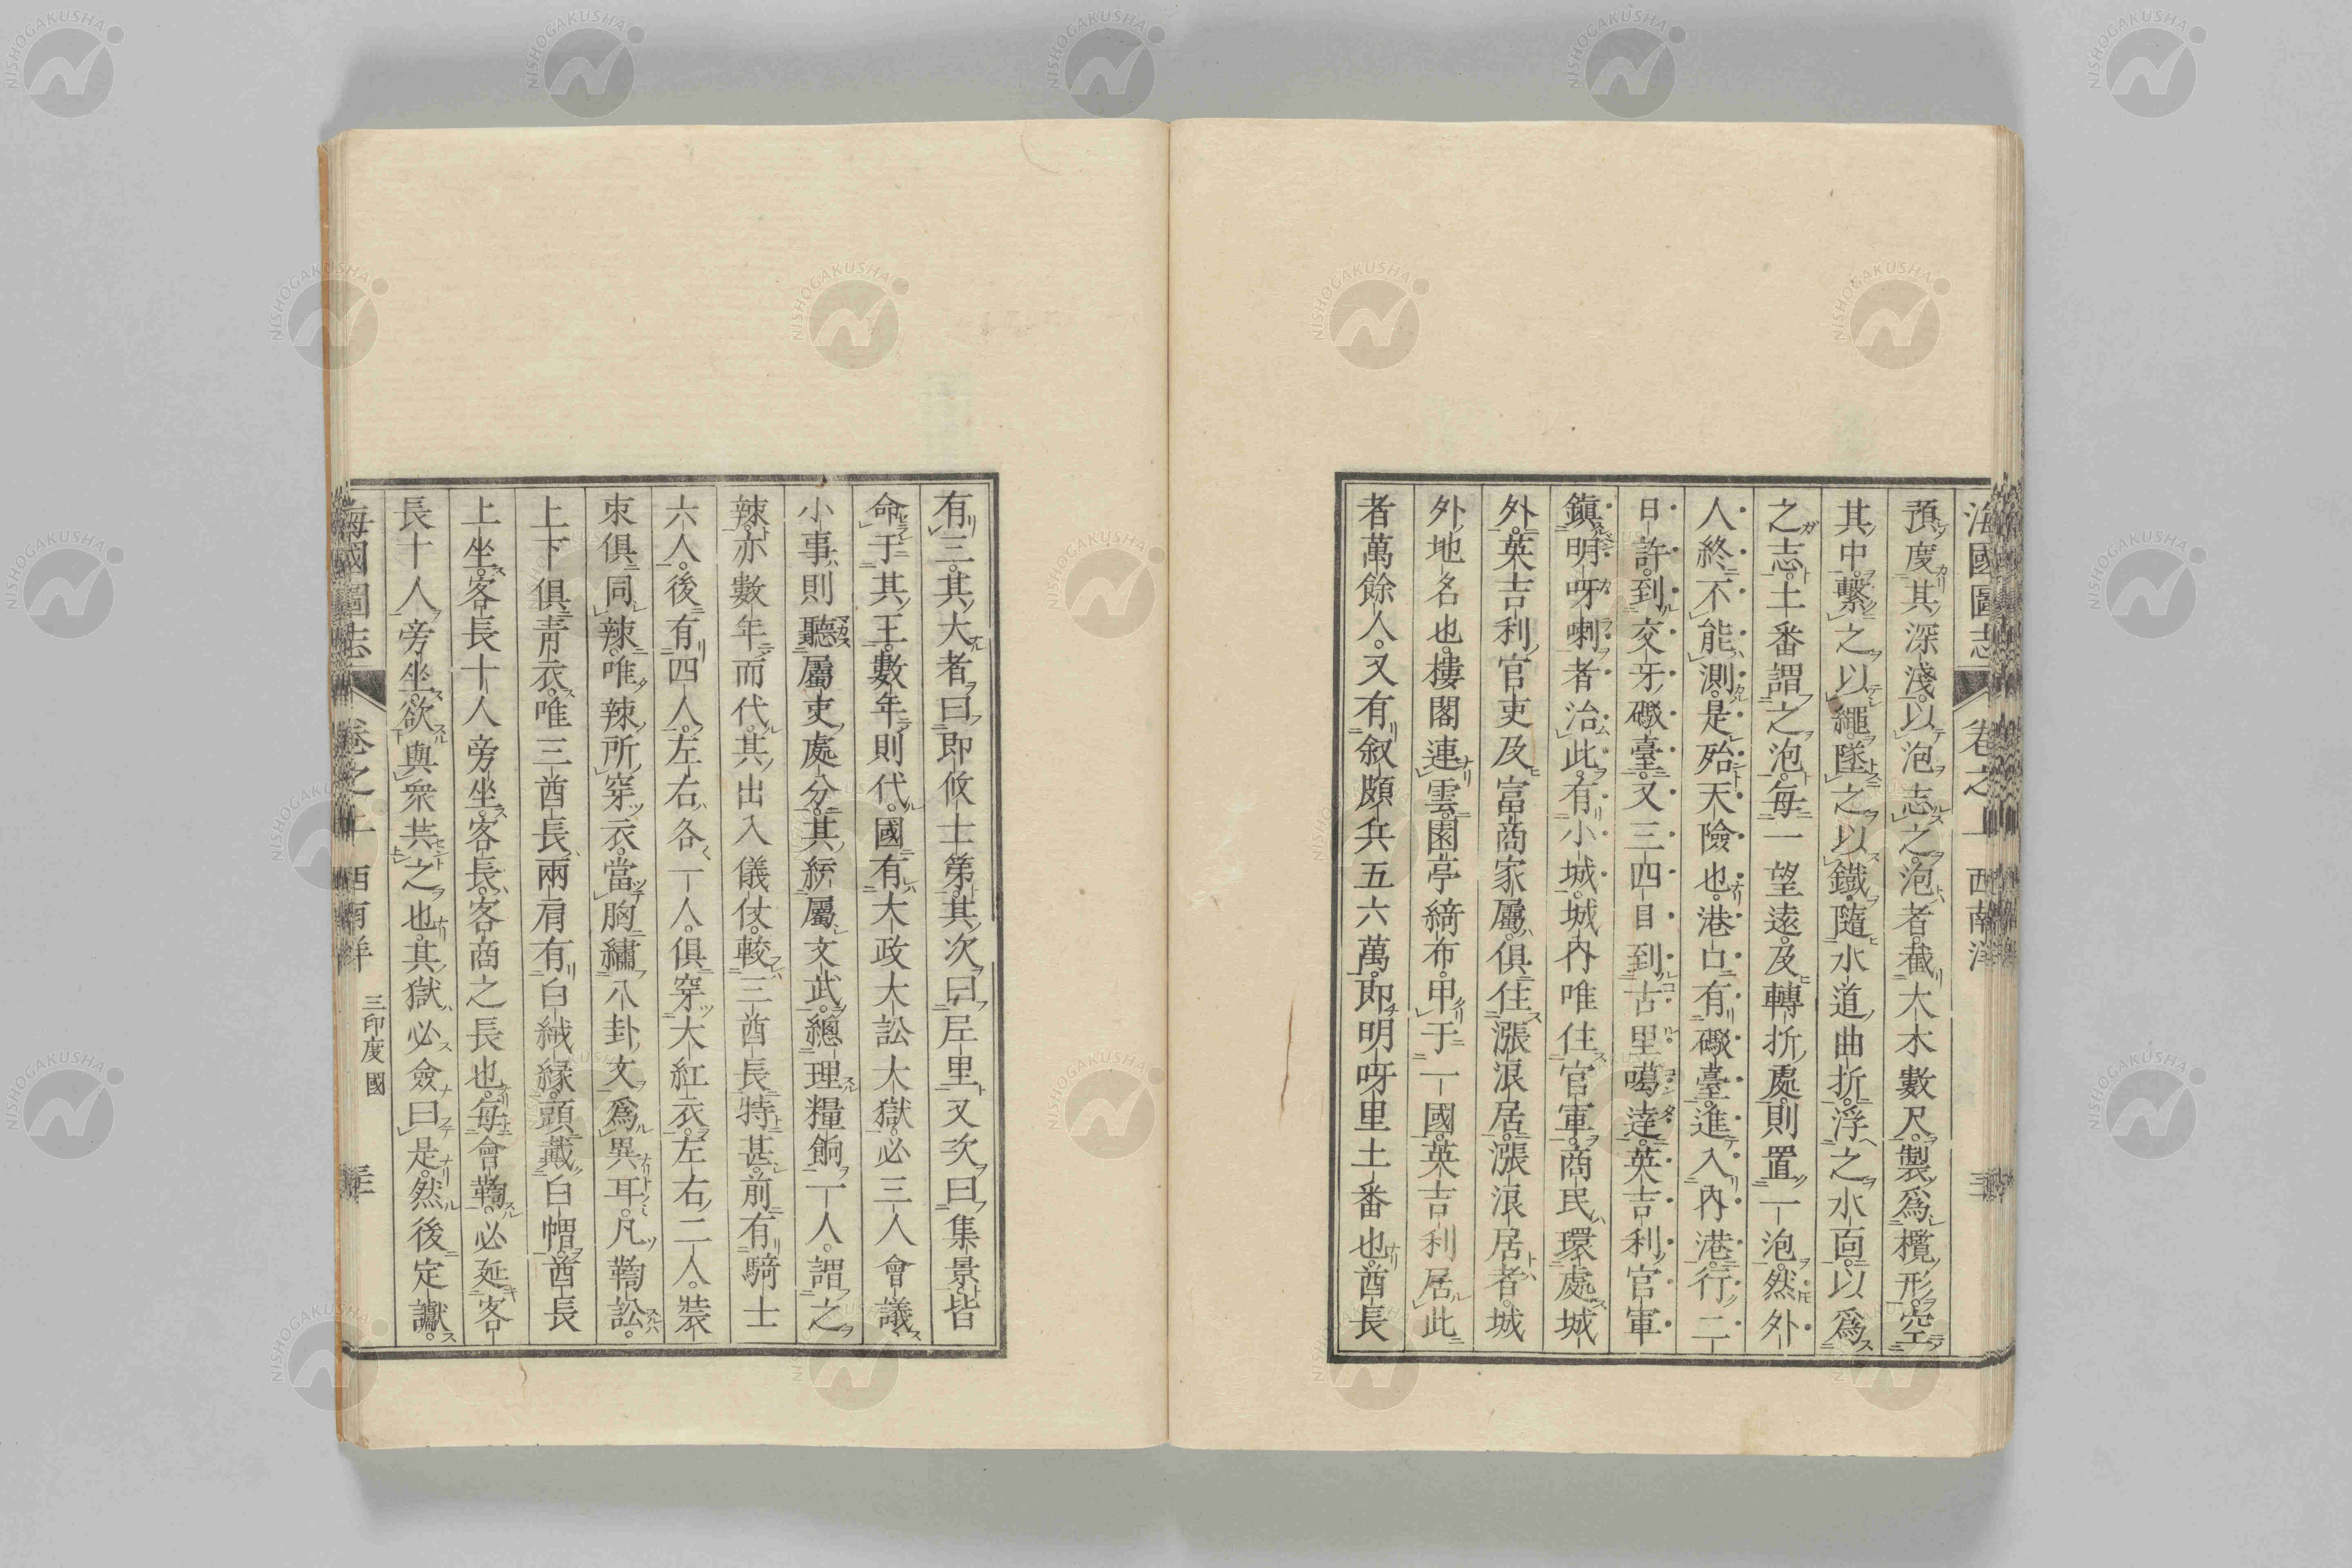 海國圖志 卷之 西南洋
預度其深淺。以泡志之。泡者。截大木數尺。製爲欖形。空
其中。繫之以繩。墜之以鐵。隨水道曲折。浮之水面。以爲
之志。土番謂之泡。每一望遠。及轉折處。則置一泡。然外
人終不能測。是殆天險也。港口有礮臺。進入內港。行二
日許。到交牙礮臺。又三四日到古里噶達。英吉利官軍
鎭明呀喇者治此。有小城。城內唯住官軍。商民環處城
外。英吉利官吏及富商家屬。俱住漲浪居。漲浪居者。城
外地名也。樓閣連雲。園亭綺布。甲于一國。英吉利居此
者萬餘人。又有叙頗兵五六萬。即明呀里土番也。酋長
有三。其大者曰即攸士第。其次曰呈里。又次曰集景。皆
命于其王。數年則代。國有大政大訟大獄。必三人會議。
小事則聽屬吏處分。其統屬文武。總理糧餉一人。謂之
辣。亦數年而代。其出入儀仗。較三酋長特甚。前有騎士
六人。後有四人。左右各一人。俱穿大紅衣。左右二人。裝
束俱同辣。唯辣所穿衣。當胸繡八卦文爲異耳。凡鞫訟。
上下俱靑衣。唯三酋長兩肩有白絨緣。頭戴白帽。酋長
上坐。客長十人旁坐。客長。客商之長也。每會鞫。必延客
長十人旁坐。欲與衆共之也。其獄必僉曰是。然後定讞。
海國圖志 卷之 西南洋 三印度國